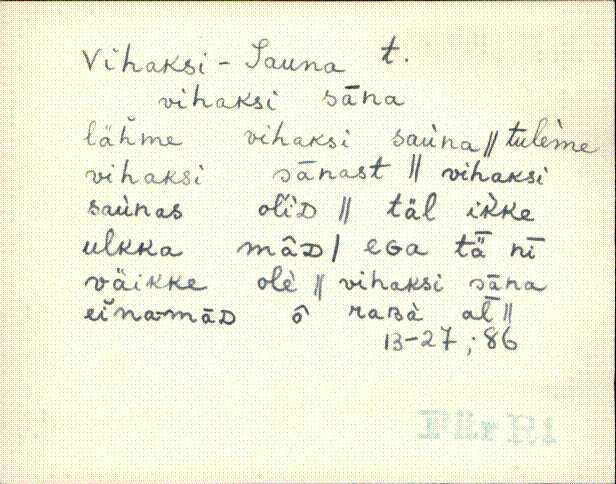 Vihaksi - Sauna t.
vihaksi sāna
lähme vihaksi saùna // tulème
vihaksi sānast // vihaksi
saùnas oliD // täl ikke
ulkka mâD / eGa tǟ nī
väikke olè // vihaksi sāna
eìnamāD ô raBà al̄ //
13-27; 86
Pür Ri